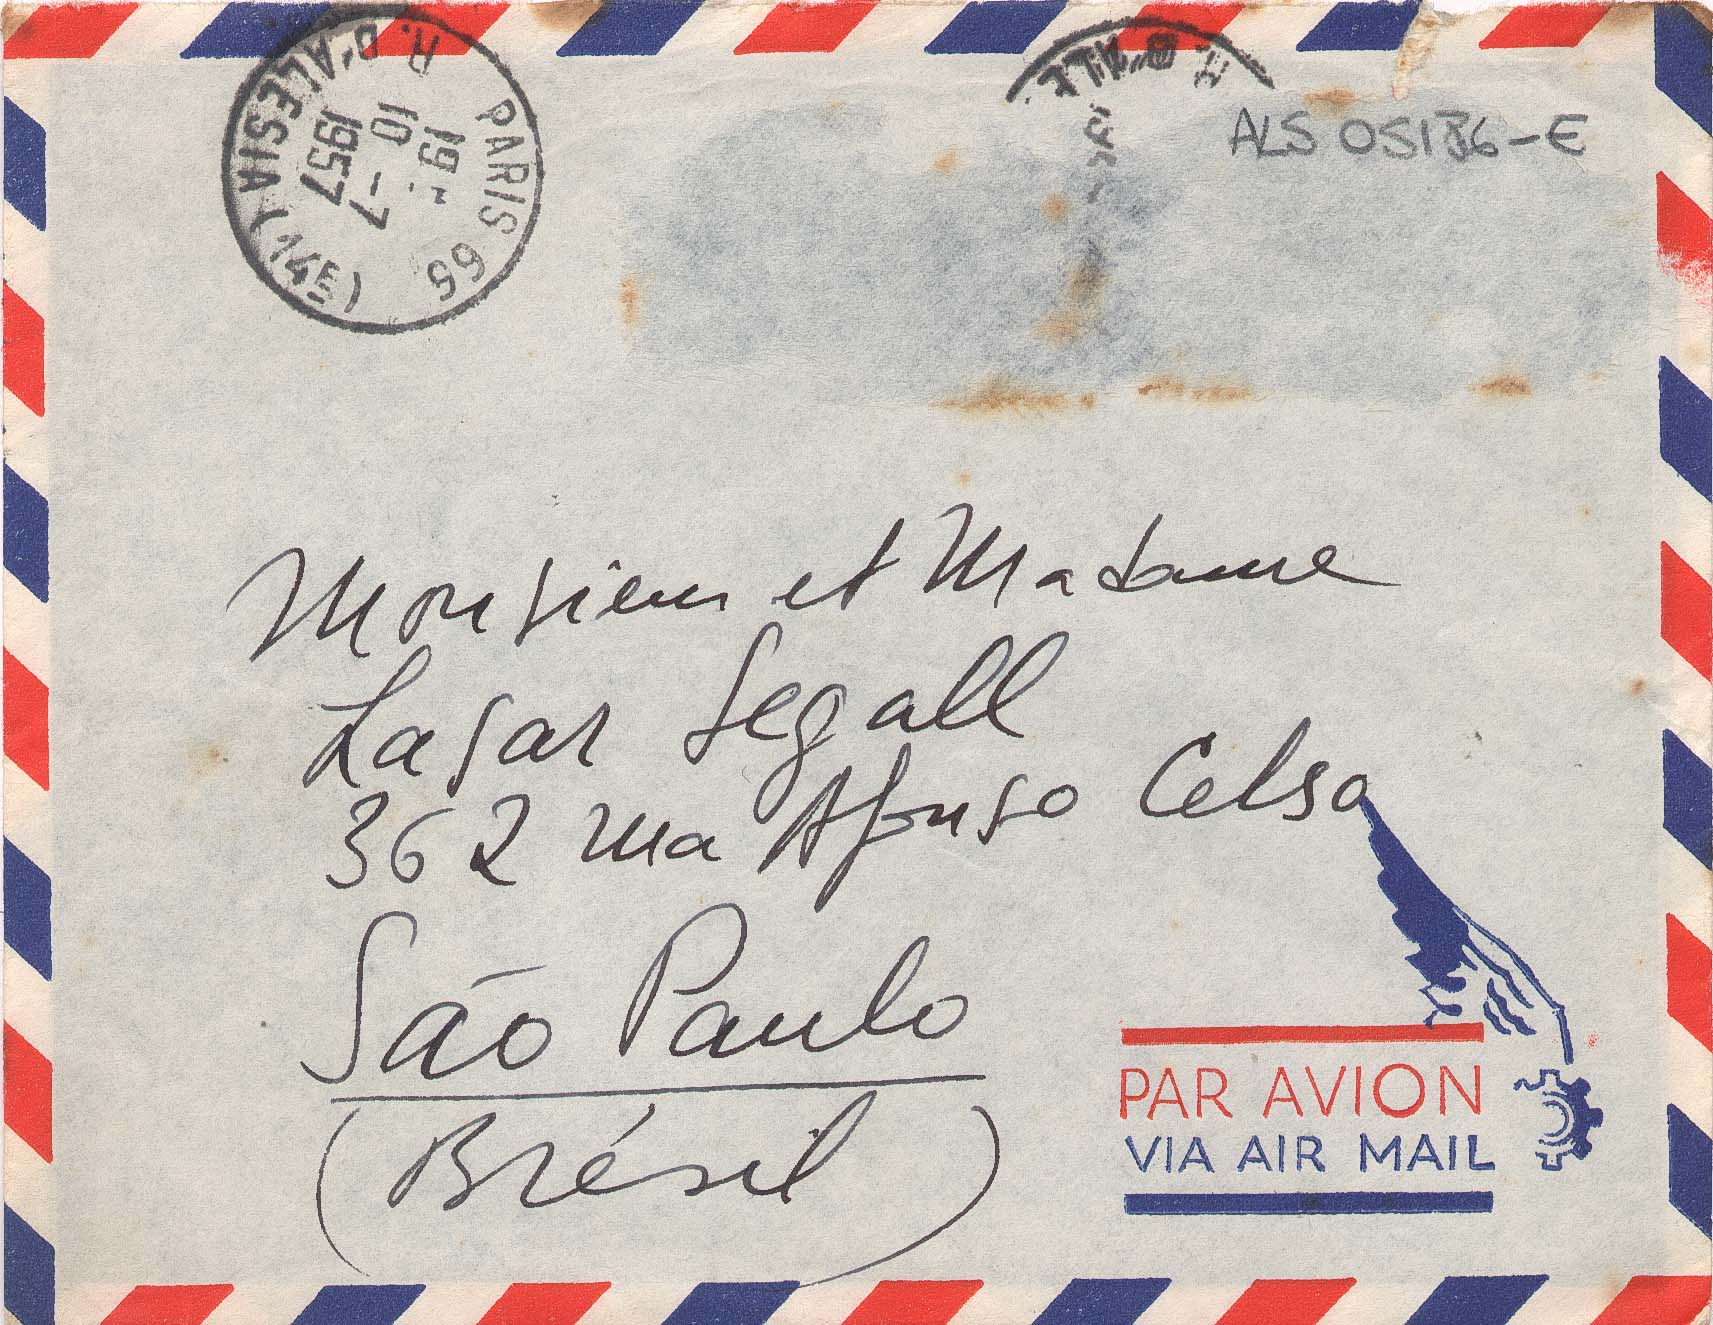 PARIS 99
R. D'ALESIA (14E)
19
10 -7
1957
ALS 05186-E
Monsieur et Madame
Lasar Segall
362 rua Afonso Celso
São Paulo
(Brésil)
PAR AVION
VIA AIR MAIL